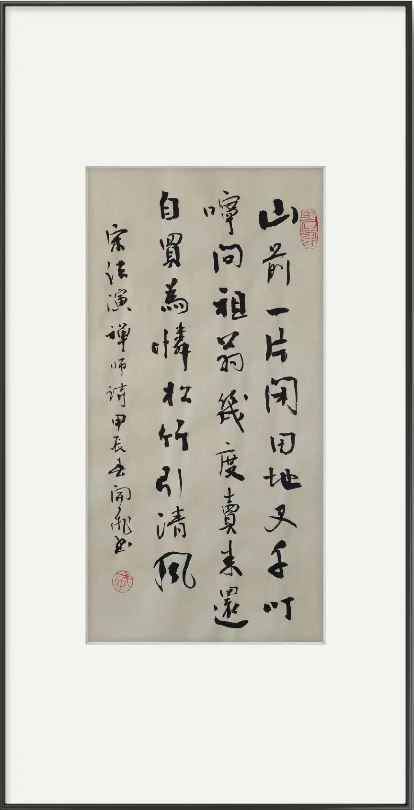 山前一片閑田地叉手叮
嚀問祖翁幾度賣来還
自買為憐松竹引清風
宋法演禪師詩甲辰春書